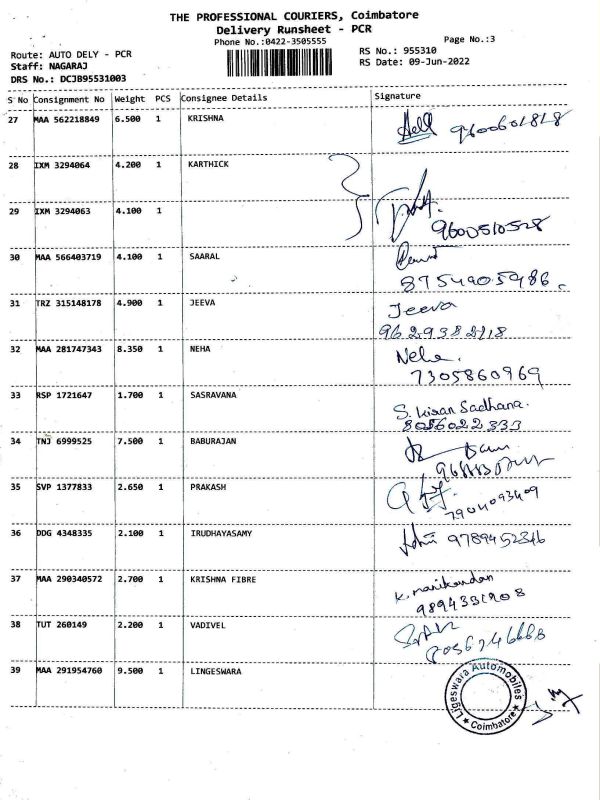 THE PROFESSIONAL COURIERS, Coimbatore
Delivery Runsheet - PCR
Phone No.:0422-3505555
Page No.:3
Route: AUTO DELY - PCR
RS No.: 955310
Staff: NAGARAJ
RS Date: 09-Jun-2022
DRS No.: DCJB95531003
S No Consignment No Weight PCS Consignee Details Signature
27 MAA 562218849 6.500 1 KRISHNA
9600601818
28 IXM 3294064 4.200 1 KARTHICK
29 IXM 3294063 4.100 1
9600510528
30 MAA 566403719 4.100 1 SAARAL
8754905986.
31 TRZ 315148178 4.900 1 JEEVA Jeeva
9629382118
32 MAA 281747343 8.350 1 NEHA Neha.
7305860969
33 RSP 1721647 1.700 1 SASRAVANA
S. Kisan Sadhana.
8056022333
34 TNJ 6999525 7.500 1 BABURAJAN
35 SVP 1377833 2.650 1 PRAKASH
7904093409
36 DDG 4348335 2.100 1 IRUDHAYASAMY
9789452346
37 MAA 290340572 2.700 1 KRISHNA FIBRE
K. manikandan
9894331908
38 TUT 260149 2.200 1 VADIVEL
39 MAA 291954760 9.500 1 LINGESWARA
Ligeswara Automobiles
★ Coimbatore ★